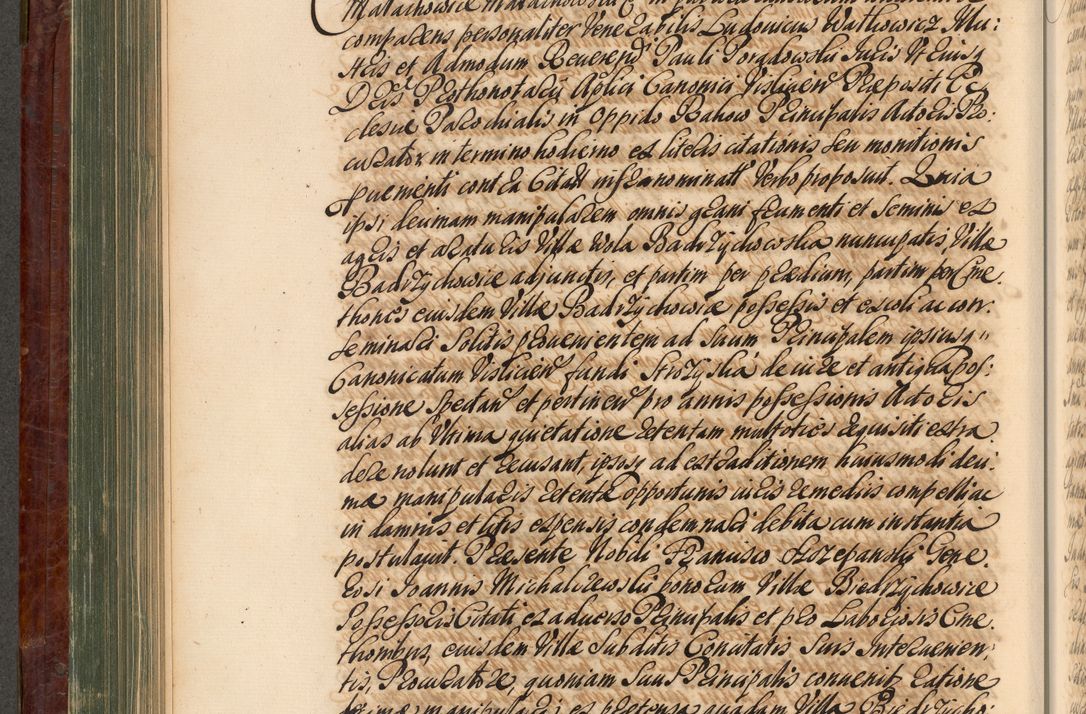 Małachowice Małachowski
comparens personaliter Venerabilis Ludovicus Watkowicz Mu:
steis et Admodum Reverendi Pauli Poradowski Juris Vtriusq
Dris Prothonotarij Aplici Canonici Vislicien Præpositi Ec
clesiæ Parochialis in Oppido Bahow Principalis Actoris Pro:
curator in termino hodierno ex literis citationis seu monitionis
p̱uementi contra Citat infranominatt Verbo proposuit. Quia
ipsi decimam manipularem omnis grani frumenti et Seminis ex
agris et araturis Villæ Wola Badrzychowska nuncupatis, Villæ
Badrzychowice adjunctis, et partim per prædium, partim per Cme
thones eiusdem Villæ Badrzychowice possessis et excoli ac con:
seminari Solitis provenientem ad Suum Principalem ipsiusq"
Canonicatum Vislicien fundi Strozyska de iure et antiqua pos:
sessione Spectan et pertinen pro annis possessionis Actoris
alias ab Vltima quietatione retentam multoties requisiti extra
dere nolunt et recusant, ipsosq ad extraditionem huiusmodi deci:
mæ manipularis retentæ opportunis iuris remediis compelli ac
in damnis et litis expensis condemnari debita cum instantia
postulavit. Præsente Nobili Francisco Szczepanski Gene
rosi Joannis Michalczewski bonorum Villæ Biedrzychowice
Possessoris Citati ex adverso Principalis et pro Laboriosis Cme
thonibus, eiusdem Villæ Subditis Concitatis Suis Intervenien:
tis, Procuratore, quoniam Suus Principalis convenit ratione
decimæ manipularis ex prætensa quadam Villa Biedrzycho: